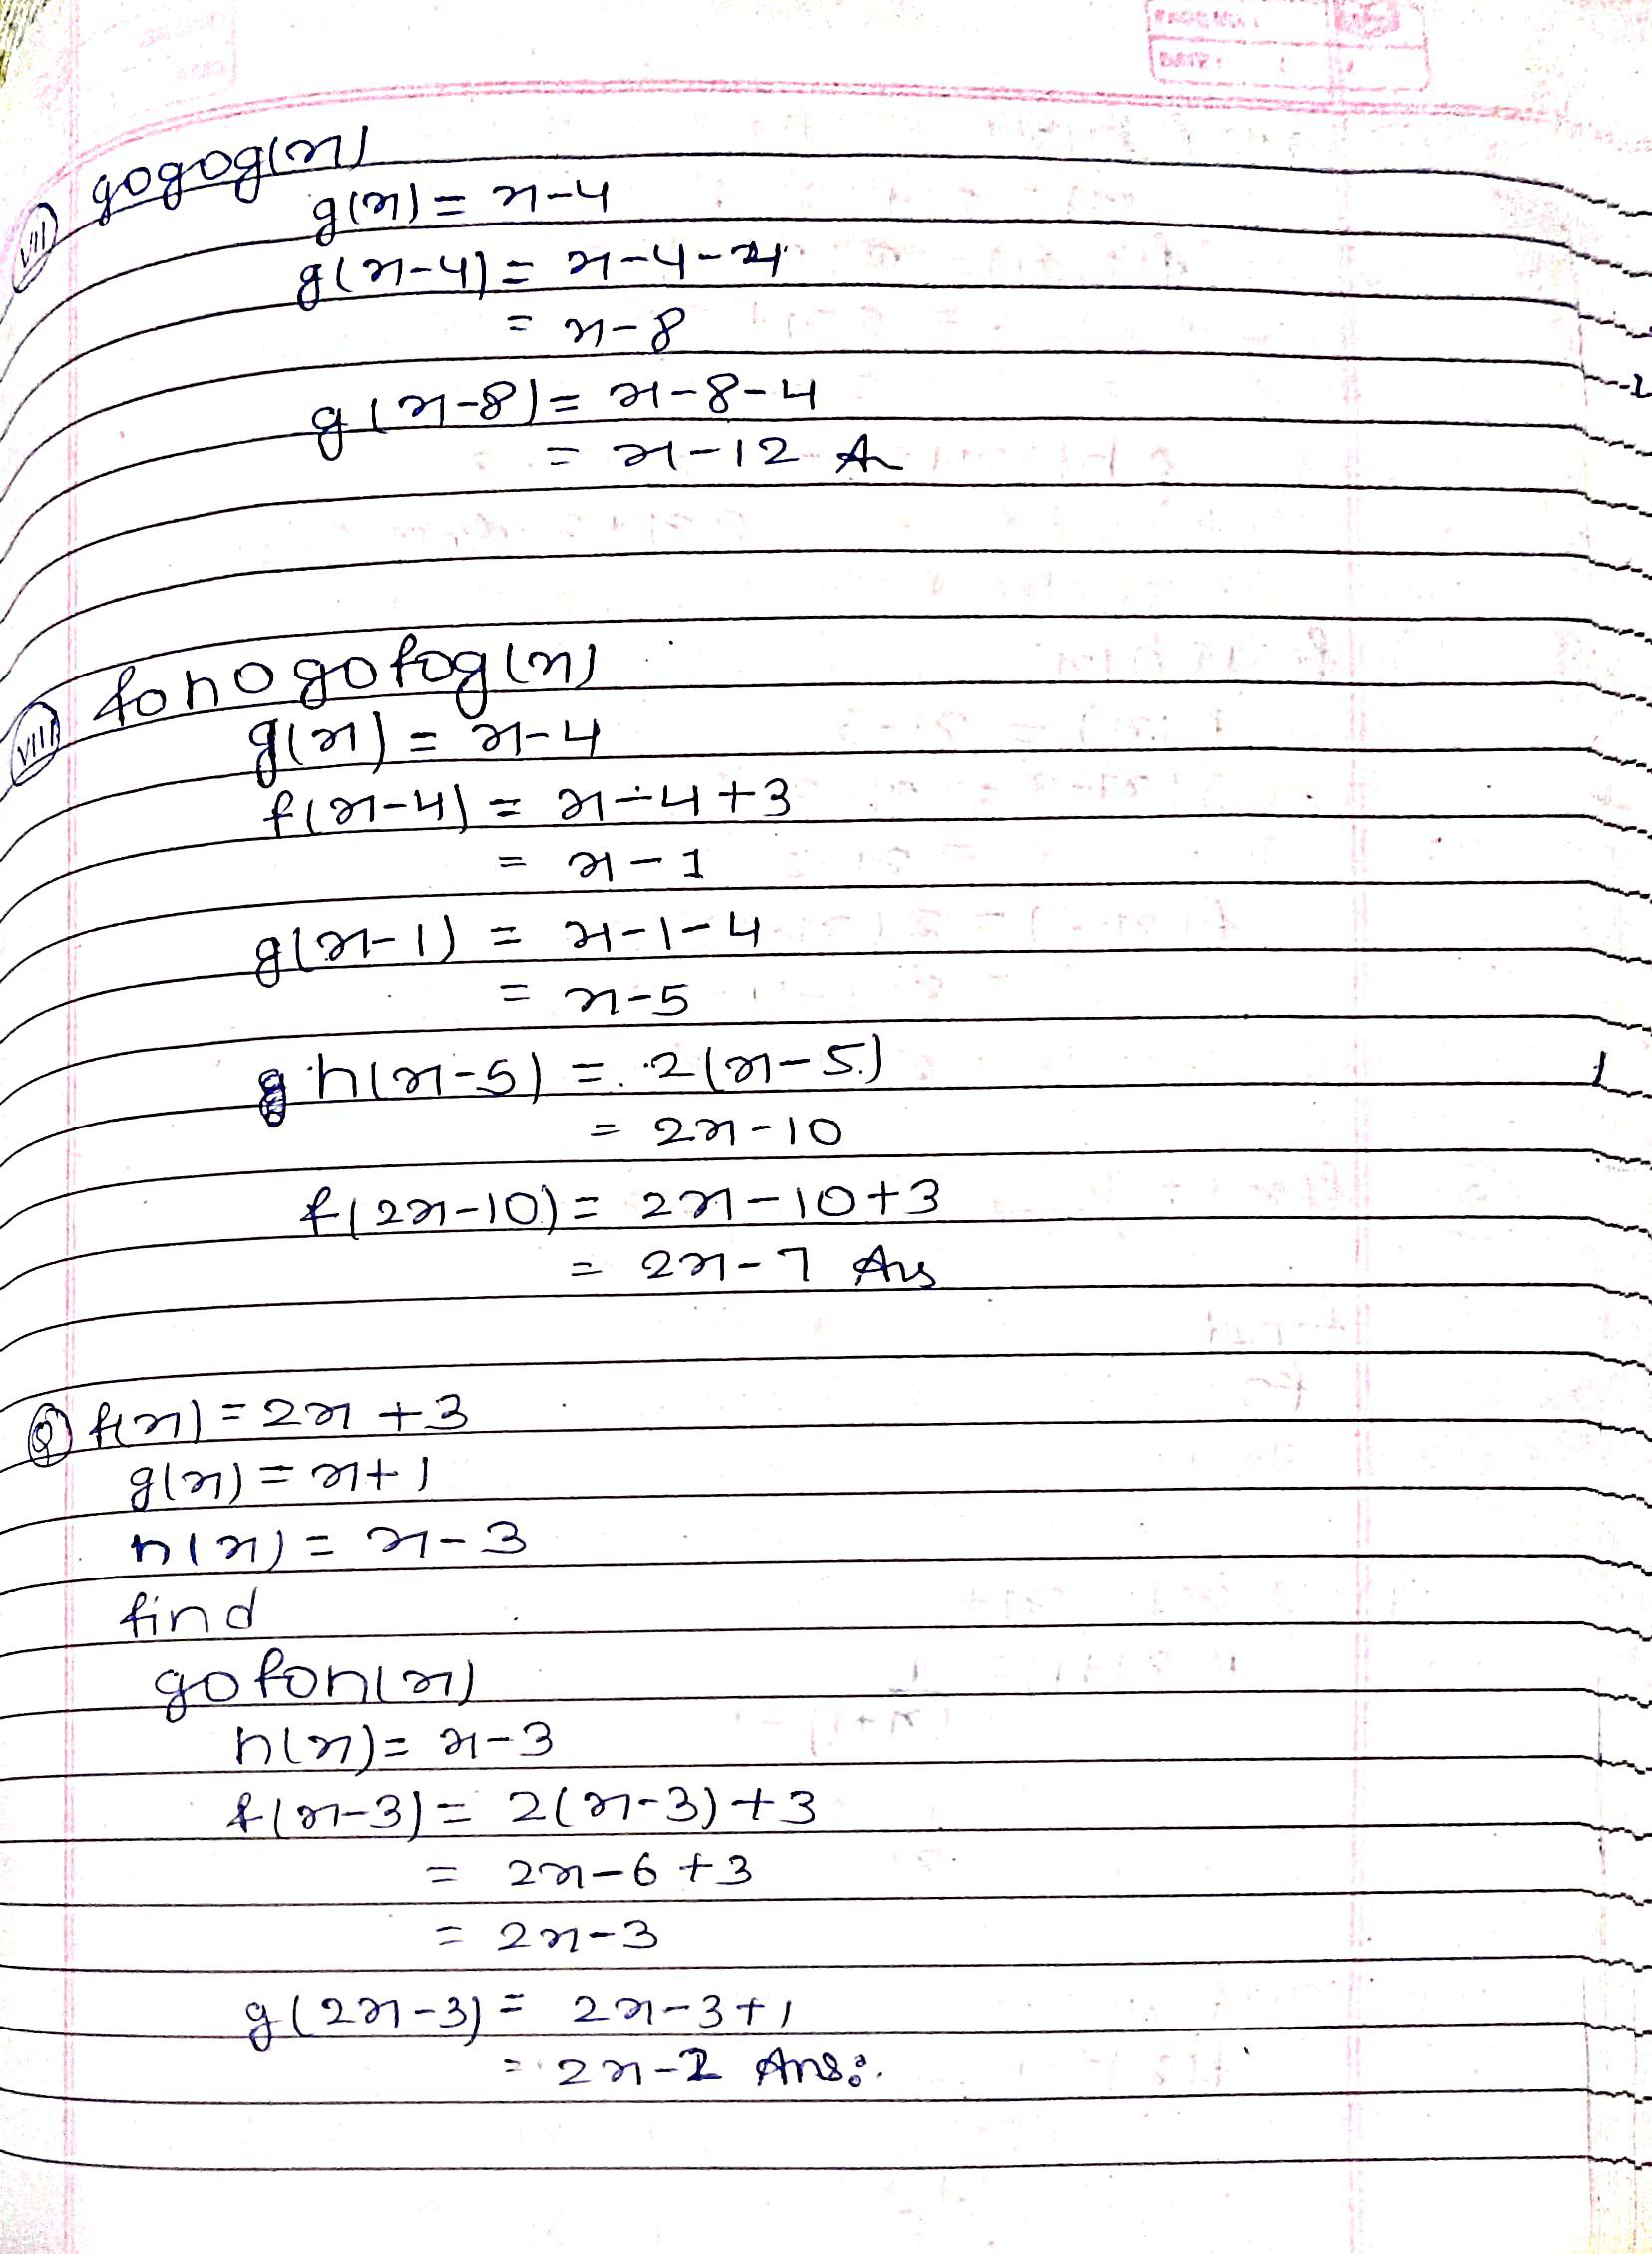 (vii) gogog(x)
g(x) = x-4
g(x-4) = x-4-4
= x-8
g(x-8) = x-8-4
= x-12 A
(viii) fohogofog(x)
g(x) = x-4
f(x-4) = x-4+3
= x-1
g(x-1) = x-1-4
= x-5
h(x-5) = 2(x-5)
= 2x-10
f(2x-10) = 2x-10+3
= 2x-7 Ans
Q f(x) = 2x+3
g(x) = x+1
h(x) = x-3
find
gofoh(x)
h(x) = x-3
f(x-3) = 2(x-3)+3
= 2x-6+3
= 2x-3
g(2x-3) = 2x-3+1
= 2x-2 Ans: